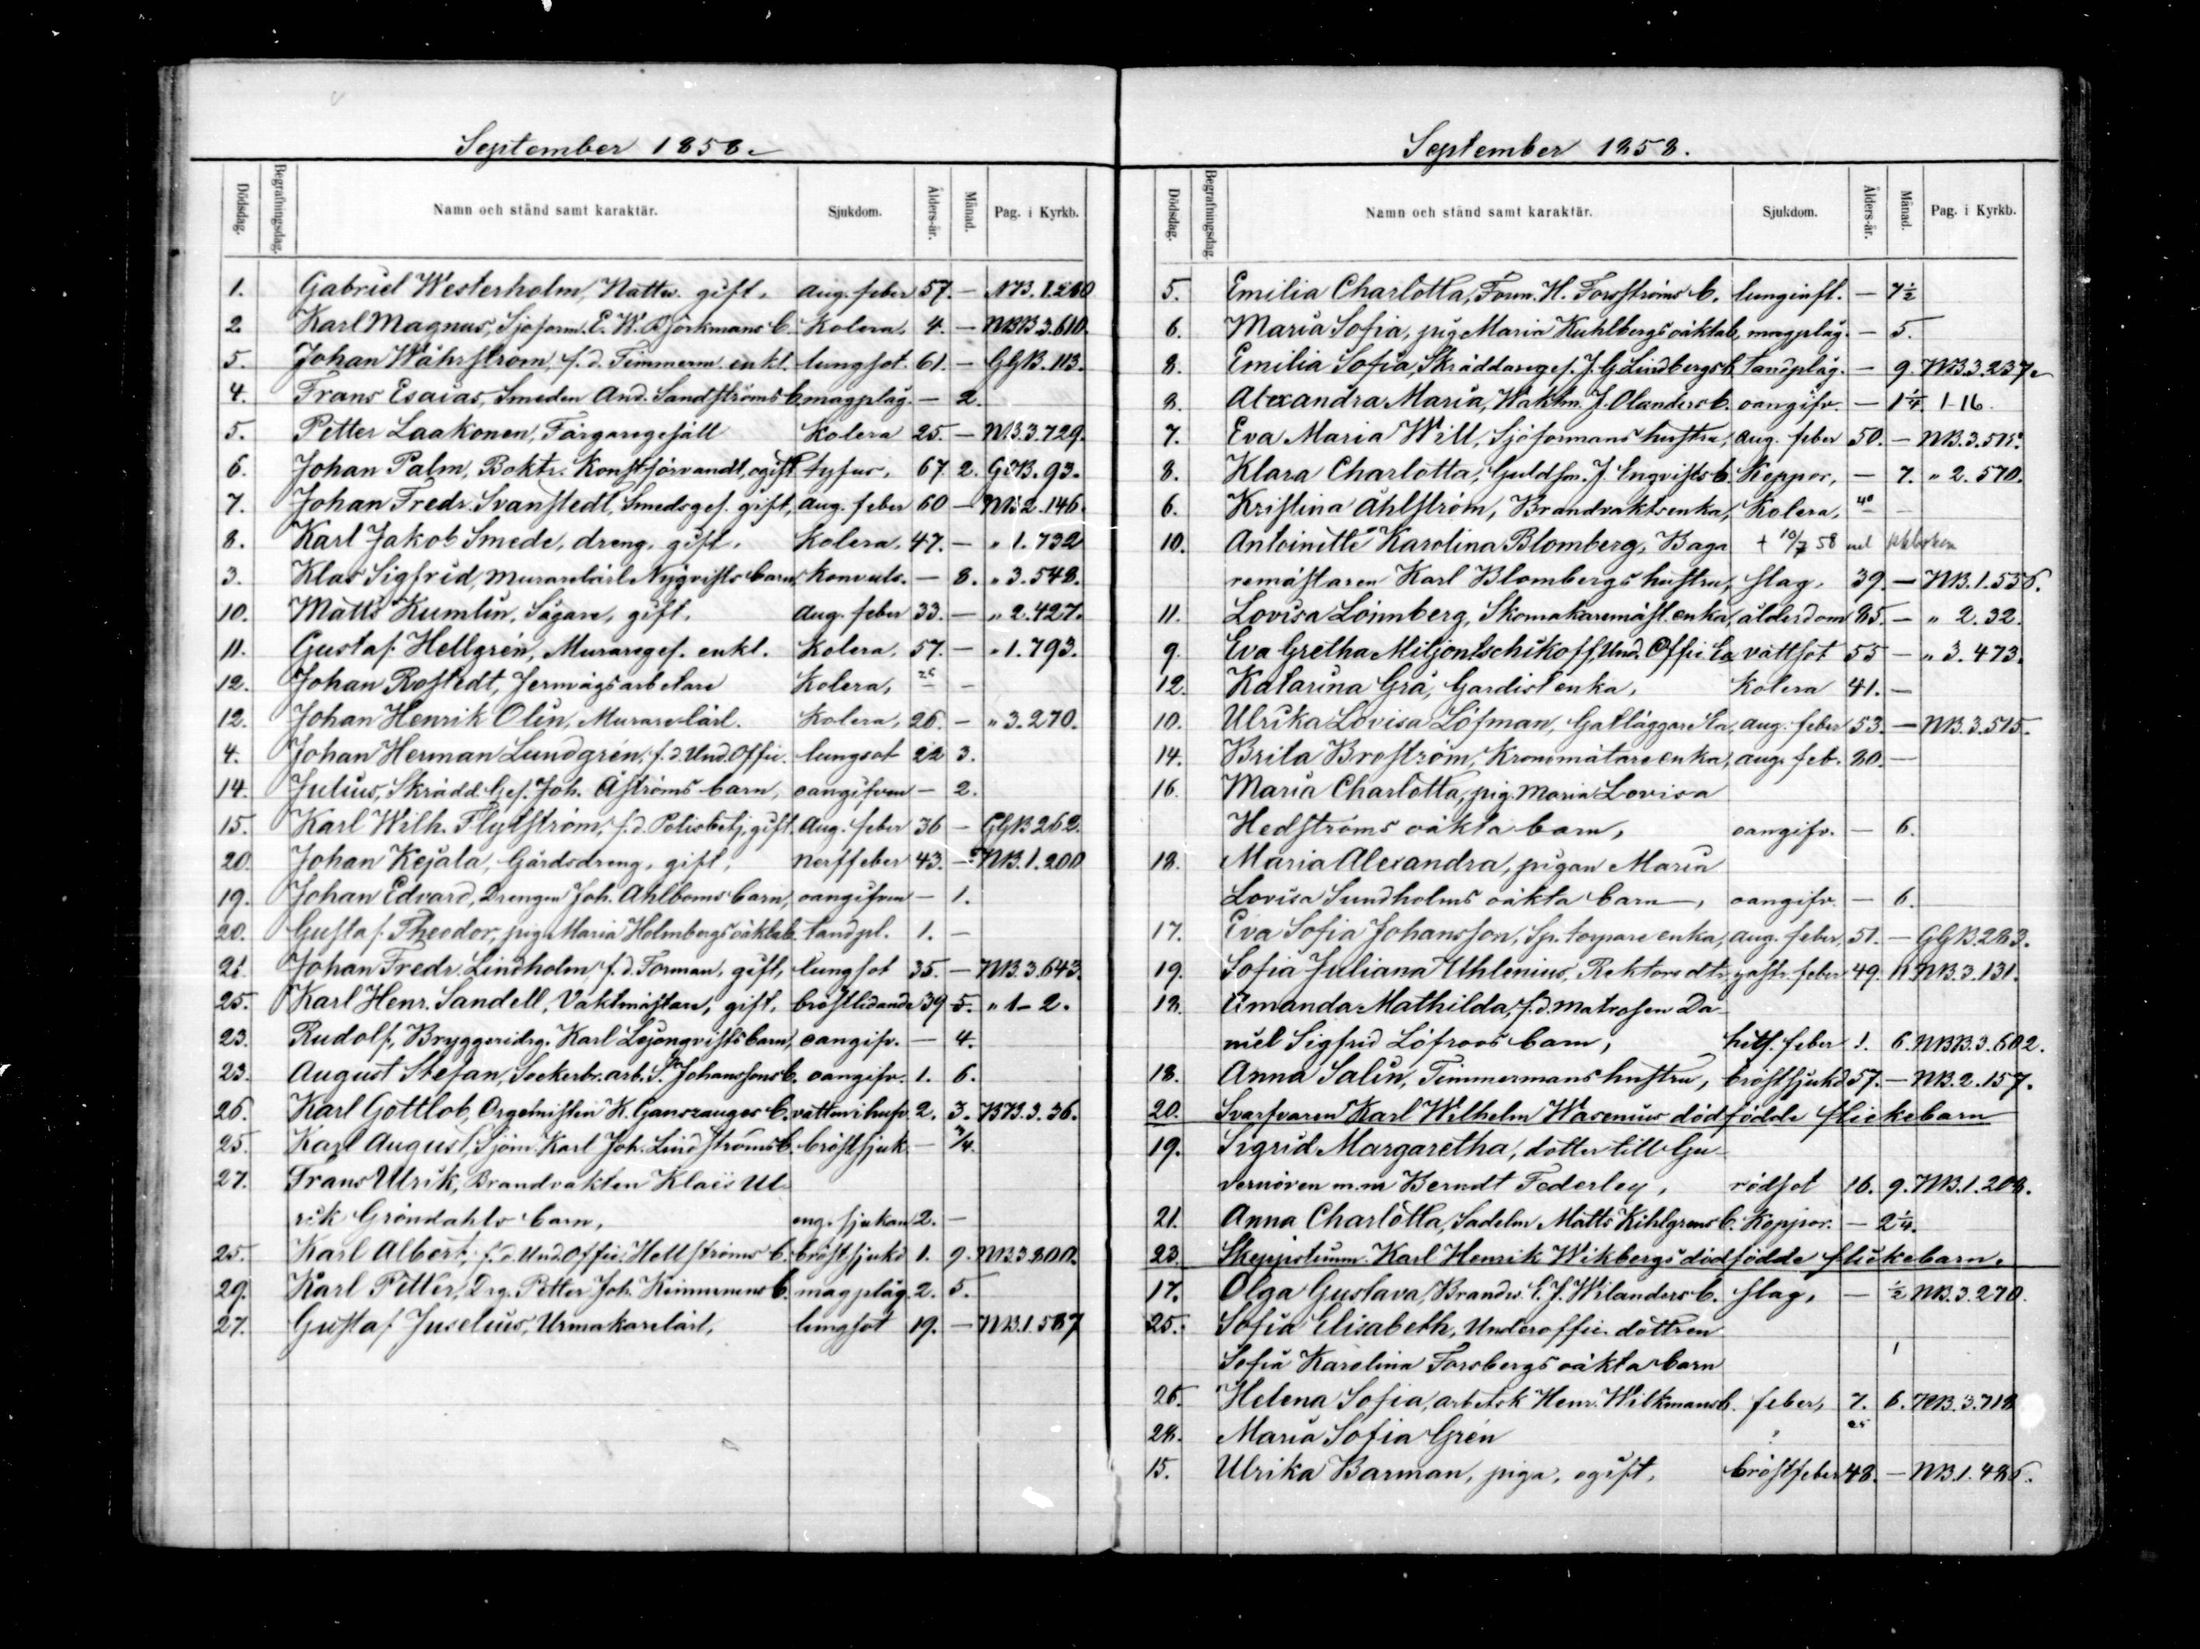 September 1858.
Dödsdag. Begrafningsdag. Namn och stånd samt karaktär. Sjukdom. Ålders-år. Månad. Pag. i Kyrkb.
1. Gabriel Westerholm, Nattv. gift, aug. feber 57. — NB. 1.200
2 Karl Magnus, Sjöform. E. W. Björkmans b. Kolera, 4. — NBB 3.610.
5. Johan Wåhrström, f.d. Timmerm. enkl. lungsot. 61. — GGB. 113.
4. Frans Esaias, Smeden And. Sandströms b. magplåg. — 2.
5. Petter Laakonen, Färgaregesäll Kolera 25. — NB. 3.729.
6. Johan Palm, Boktr. Konstförvandt, ogift tyfus, 67. 2. GGB. 93.
7. Johan Fredr. Svanstedt, Smedsges. gift, aug. feber 60 — NB 2.146.
8. Karl Jakob Smede, dreng, gift, Kolera, 47. — „ 1.732
3. Klas Sigfrid, Murarelärl. Nyqvists barn konvuls. — 8. „ 3.548.
10. Matts Kumlin, Sågare, gift, aug. feber 33. — „ 2.427.
11. Gustaf Hellgrén, Murareges. enkl. Kolera, 57. — „ 1.793.
12. Johan Rostedt, Jernvägsarbetare Kolera, —
12. Johan Henrik Olin, Murarelärl. Kolera, 26. — „ 3.270.
4. Johan Herman Lundgrén, f.d. Und. Offic. lungsot 22 3.
14. Julius, Skrädd. Ges. Joh. Åströms barn, oangifven — 2.
15. Karl Wilh. Flytström, f.d. Polisbetj. gift. Aug. feber 36 — GGB 262.
20. Johan Kejala, Gårdsdreng, gift, nerffeber 43. — NB. 1.200
19. Johan Edvard, Drengen Joh. Ahlboms barn, oangifven — 1.
20. Gustaf Theodor, pig. Maria Holmbergs oäkta b. tandpl. 1. —
21. Johan Fredr. Lindholm, f.d. Forman, gift, lungsot 35. — NB. 3.643.
25. Karl Henr. Sandell, Vaktmästare, gift. bröstlidande 39 5. „ 1-2.
23. Rudolf, Bryggeridrg. Karl Lejonqvists barn, oangifv. — 4.
23. August Stefan, Sockerbr. arb. S. Johanssons b. oangifv. 1. 6.
26. Karl Gottlob, Orgelnisten K. Ganszauges b. vatten i hufv. 2. 3. BB. 3.36.
25. Karl August, Sjöm. Karl Joh. Lindströms b. bröstsjuk. — 3/4.
27. Frans Ulrik, Brandvakten Klaës Ul
rik Gröndahls barn, eng. sjukan 2. —
25. Karl Albert, f.d. Und. Offic. Hellströms b. bröstsjukd 1. 9. NB 3.800.
29. Karl Petter, Drg. Petter Joh. Kinnunens b. magplåg. 2. 5.
27. Gustaf Juselius, Urmakarelärl, lungsot 19. — NB. 1.587
September 1858.
Dödsdag. Begrafningsdag Namn och stånd samt karaktär. Sjukdom. Ålders-år. Månad. Pag. i Kyrkb.
5. Emilia Charlotta, Form. H. Forsströms b. lunginfl. — 7½
6. Maria Sofia, pig. Maria Kuhlbergs oäkta b, magplåg. — 5.
8. Emilia Sofia, Skräddareges. J. G. Lindbergs b. tandplåg. — 9. NB. 3.237.
8. Alexandra Maria, Waktm. J. Olanders b. oangifv. — 1¼. 1-16.
7. Eva Maria Will, Sjöformans hustru, aug. feber 50. — NB. 3.515.
8. Klara Charlotta, Guldsm. J. Engvists b. Koppor, — 7. „ 2.570.
6. Kristina Åhlström, Brandvaktsenka, Kolera, 40 —
10. Antoinette Karolina Blomberg, Baga + 10/7 58
remästaren Karl Blombergs hustru, slag, 39. — NB. 1.556.
11. Lovisa Lönnberg, Skomakaremäst. enka, ålderdom 85. — „ 2.32.
9. Eva Gretha Miljontschikoff, Und. Offic. Ea, vattsot 55 — „ 3.473.
12 Katarina Grå, Gardist enka, Kolera 41. —
10. Ulrika Lovisa Löfman, Gatläggare Ea, aug. feber 53. — NB. 3.515.
14. Brita Broström, Kronomätare enka, aug. feb. 80. —
16. Maria Charlotta, pig. Maria Lovisa
Hedströms oäkta barn, oangifv. — 6.
18. Maria Alexandra, pigan Maria
Lovisa Sundholms oäkta barn, oangifv. — 6.
17. Eva Sofia Johansson, Sp. torpare enka, aug. feber, 51. — GGB. 283.
19. Sofia Juliana Uhlenius, Rektors dtr. gastr. feber 49. 11. NB. 3.131.
18. Amanda Mathilda, f.d. Matrosen Da
niel Sigfrid Löfroos barn, hets. feber 1. 6. NBB. 3.602.
18. Anna Salin, Timmermans hustru, bröstsjukd 57. — NB. 2.157.
20. Svarfvaren Karl Wilhelm Wasenius dödfödde flickebarn
19. Sigrid Margaretha, dotter till Gu
vernören m.m Berndt Federley, rödsot 16. 9. NB. 1.208.
21. Anna Charlotta, Sadelm. Matts Kihlgrens b. Koppor. — 2¼.
23. Skeppstimm. Karl Henrik Wikbergs dödfödde flickebarn.
17. Olga Gustava, Brandv. E. J. Wilanders b. slag, — ½ NB. 3.270.
25. Sofia Elisabeth, Underoffic. dottren
Sofia Karolina Forsbergs oäkta barn 1
26. Helena Sofia, arbetsk. Henr. Wilkmans b. feber, 7. 6. NB. 3.718
28. Maria Sofia Grén ? 25
15. Ulrika Barman, piga, ogift, bröstfeber 48. — NB. 1.486.